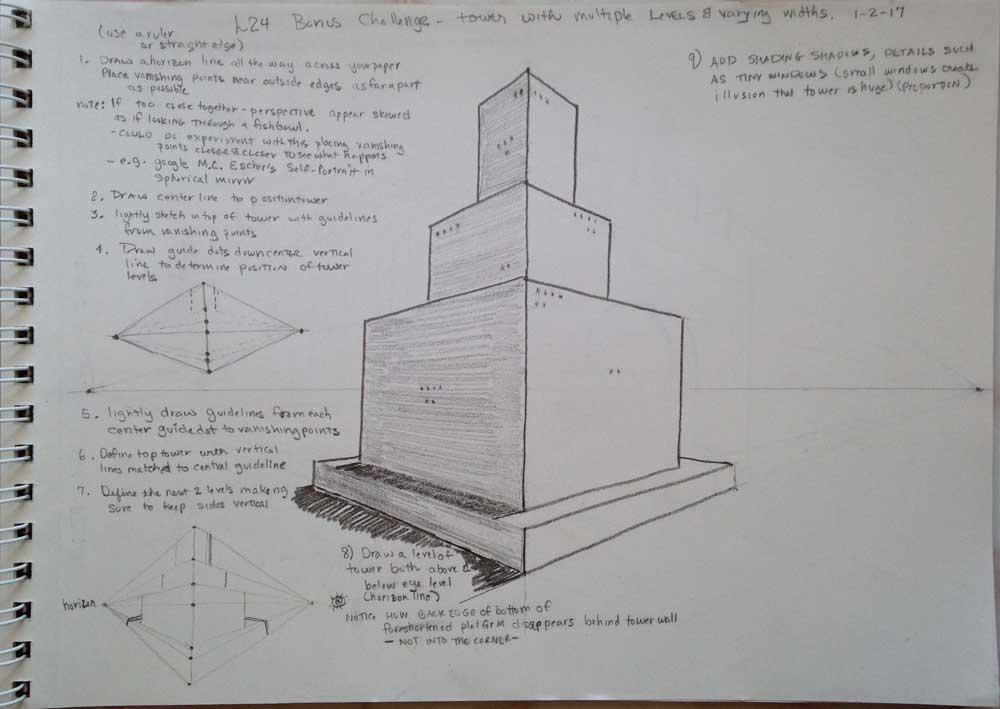 L24 Bonus Challenge - tower with multiple Levels & varying widths. 1-2-17
(use a ruler
or straight edge)
1. Draw a horizon line all the way across your paper
Place vanishing points near outside edges as far apart
as possible
note: If too close together - perspective appear skewed
as if looking through a fishbowl.
- could do experiment with this placing vanishing
points closer & closer to see what happens
- e.g. google M.C. Escher's Self-Portrait in
Spherical mirror
2. Draw center line to position tower
3. lightly sketch in top of tower with guidelines
from vanishing points
4. Draw guide dots down center vertical
line to determine position of tower
levels
5. lightly draw guidelines from each
center guide dot to vanishing points
6. Define top tower with vertical
lines matched to central guideline
7. Define the next 2 levels making
sure to keep sides vertical
horizon
8) Draw a level of
tower both above &
below eye level
(horizon line)
NOTICE HOW BACK EDGE of bottom of
foreshortened platform disappears behind tower wall
- NOT INTO THE CORNER -
9) ADD SHADING SHADOWS, DETAILS SUCH
AS TINY WINDOWS (small windows create
illusion that tower is huge) (proportion)